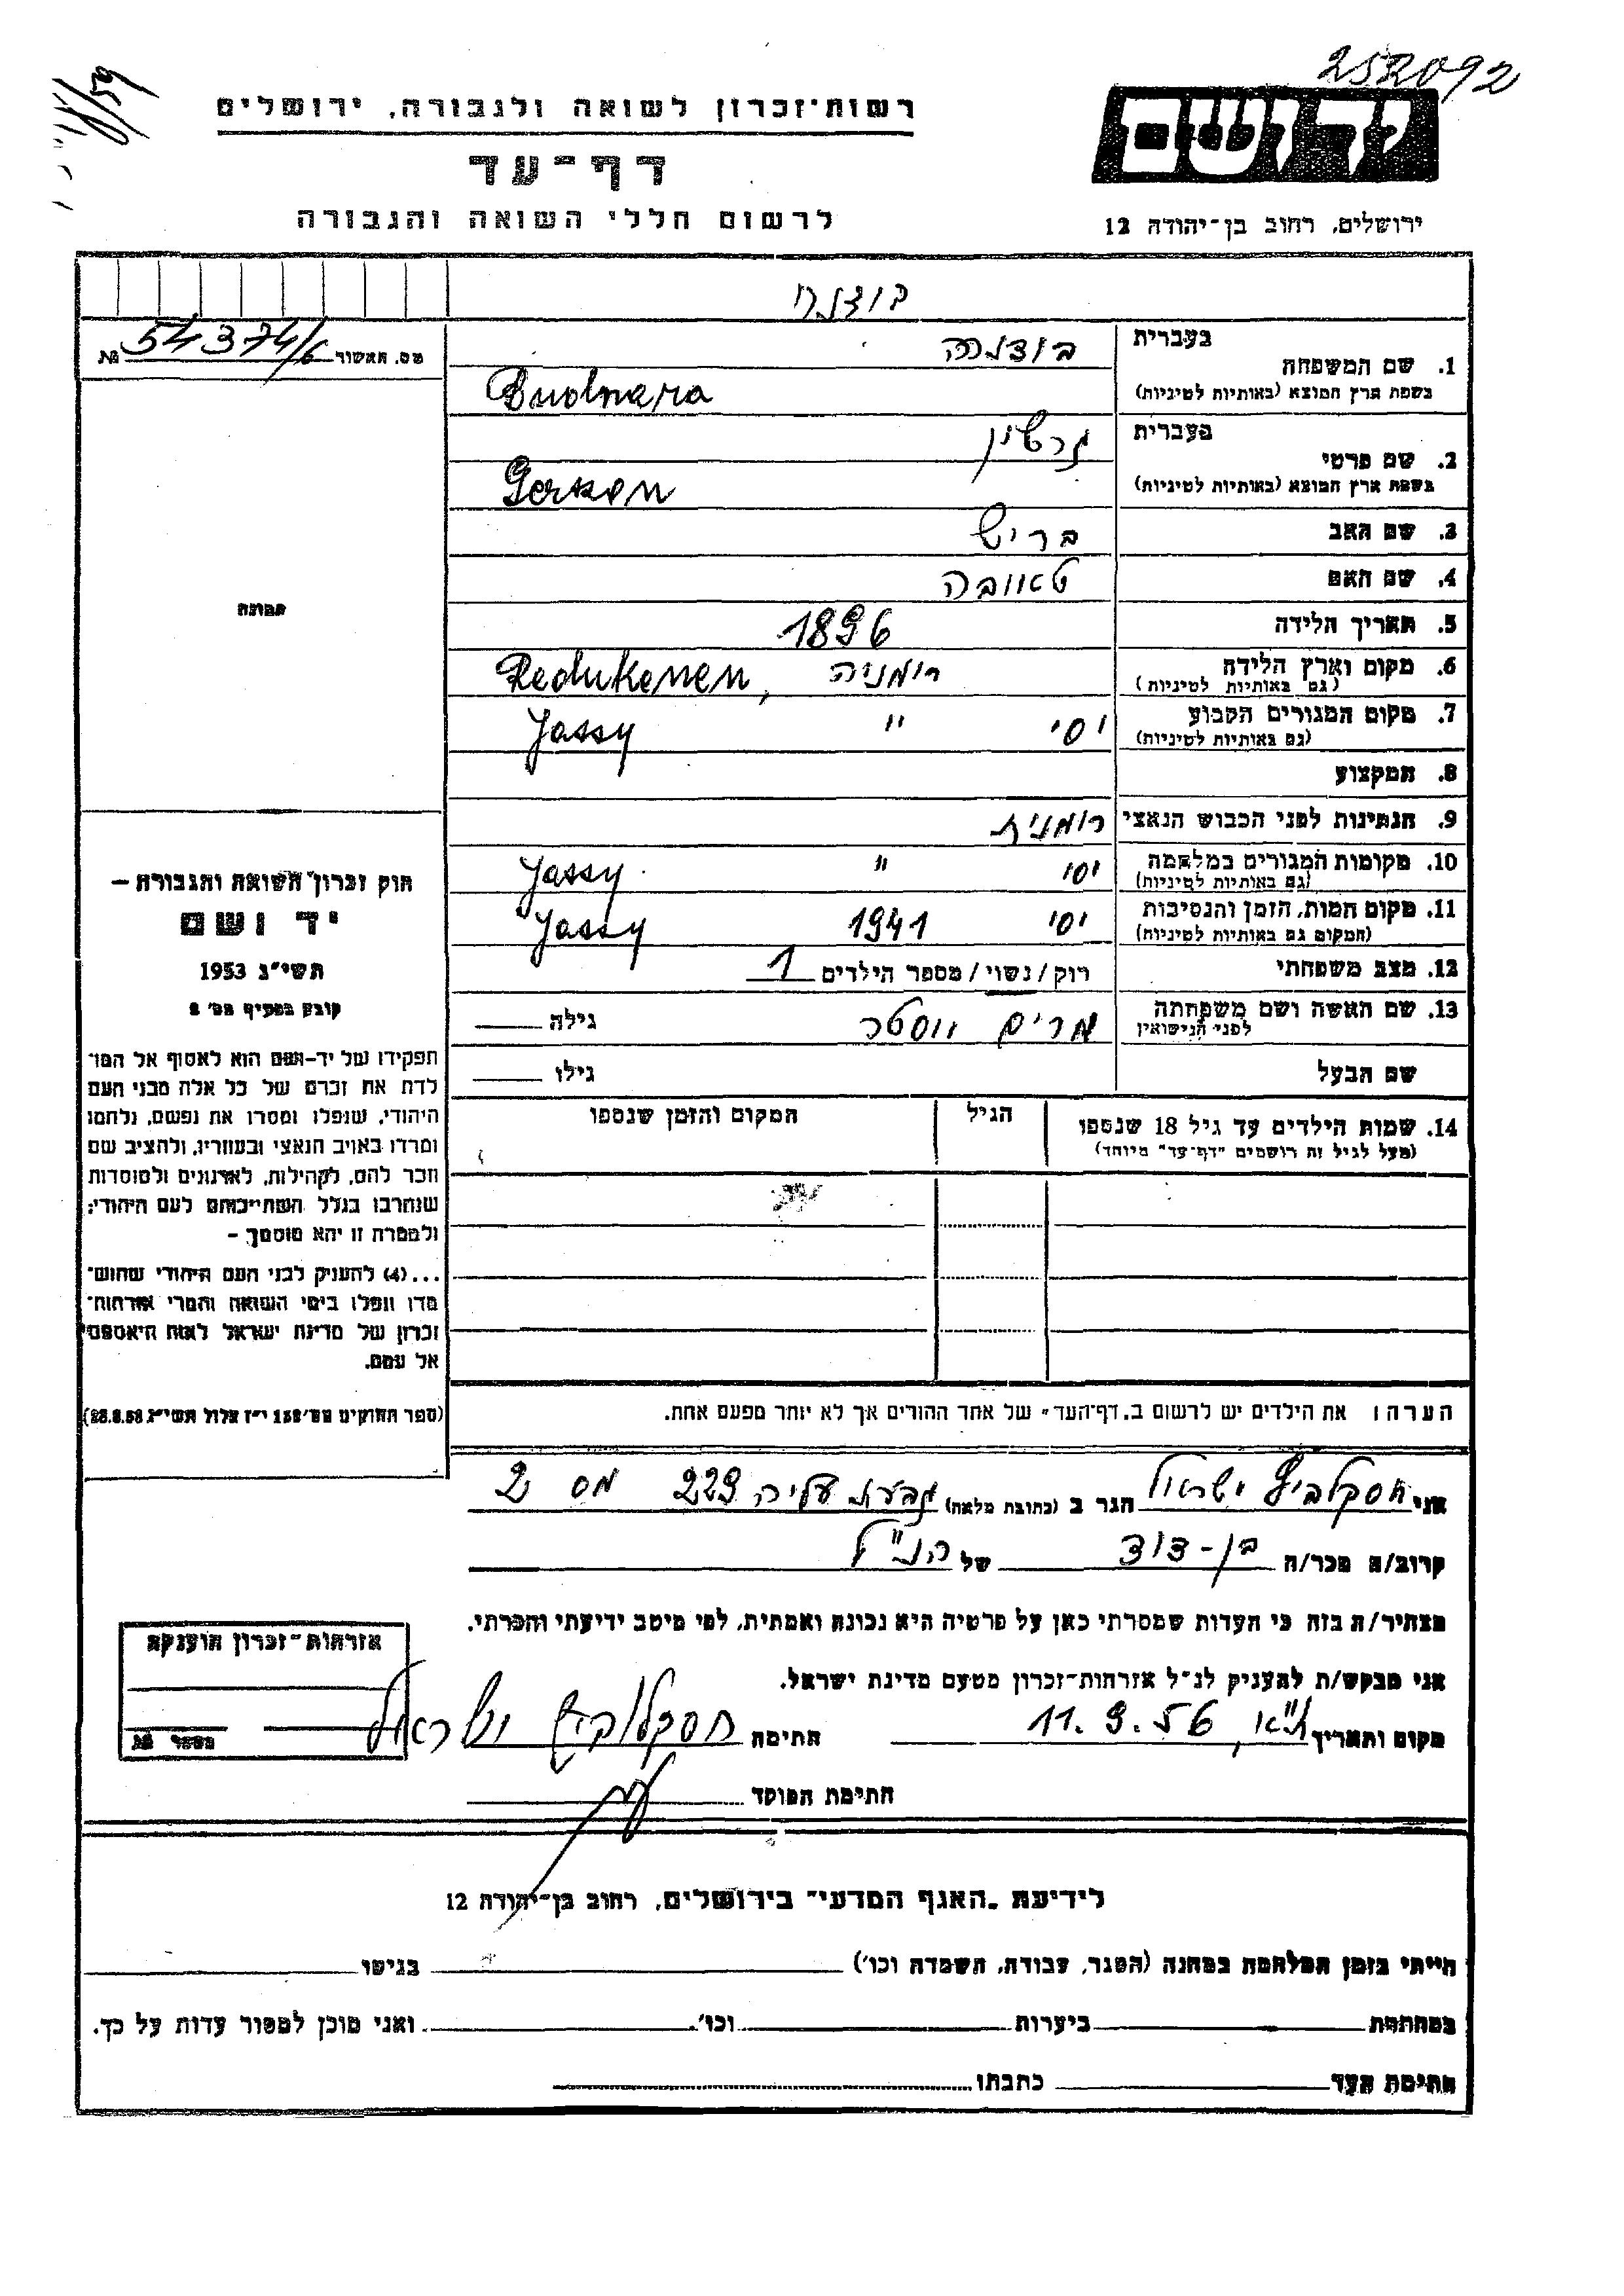 252092
ידושם
רשות-זכרון לשואה ולגבורה, ירושלים
דף-עד
לרשום חללי השואה והגבורה
ירושלים, רחוב בן-יהודה 12
מס. האשור 54374/6 №
בעברית
1. שם המשפחה
Budnara
בשפת ארץ המוצא (באותיות לטיניות)
בעברית גרשון
2. שם פרטי
Gerson
בשפת ארץ המוצא (באותיות לטיניות)
3. שם האב בריש
4. שם האם טאובה
5. תאריך הלידה 1896
6. מקום וארץ הלידה רומניה Redukenen,
(גם באותיות לטיניות)
7. מקום המגורים הקבוע יסי " Jassy
(גם באותיות לטיניות)
8. המקצוע
9. הנתינות לפני הכבוש הנאצי רומנית
10. מקומות המגורים במלחמה יסי " Jassy
(גם באותיות לטיניות)
11. מקום המות, הזמן והנסיבות יסי 1941 Jassy
(המקום גם באותיות לטיניות)
12. מצב משפחתי רווק/נשוי/מספר הילדים 1
13. שם האשה ושם משפחתה מרים ווסטר גילה
לפני הנישואין
שם הבעל גילו
14. שמות הילדים עד גיל 18 שנספו הגיל המקום והזמן שנספו
(מעל לגיל זה רושמים "דף-עד" מיוחד)
הערה: את הילדים יש לרשום ב„דף-העד" של אחד ההורים אך לא יותר מפעם אחת.
תמונה
חוק זכרון השואה והגבורה —
יד ושם
תשי"ג 1953
קובע בסעיף מס' 2
תפקידו של יד-ושם הוא לאסוף אל המו-
לדת את זכרם של כל אלה מבני העם
היהודי, שנפלו ומסרו את נפשם, נלחמו
ומרדו באויב הנאצי ובעוזריו, ולהציב שם
וזכר להם, לקהילות, לארגונים ולמוסדות
שנחרבו בגלל השתייכותם לעם היהודי;
ולמטרה זו יהא מוסמך —
...(4) להעניק לבני העם היהודי שהוש-
מדו ונפלו בימי השואה והמרי אזרחות-
זכרון של מדינת ישראל לאות היאספם
אל עמם.
(ספר החוקים מס' 132 י"ז אלול תשי"ג 28.8.53)
אני חסקלביץ ישראל הגר ב (כתובת מלאה) גבעת עליה 223 מס 2
קרוב/ה מכר/ה בן-דוד של הנ"ל
מצהיר/ה בזה כי העדות שמסרתי כאן על פרטיה היא נכונה ואמתית, לפי מיטב ידיעתי והכרתי.
אני מבקש/ת להעניק לנ"ל אזרחות-זכרון מטעם מדינת ישראל.
מקום ותאריך ת"א, 11.9.56 חתימה חסקלוביץ ישראל
חתימת הפוקד
אזרחות-זכרון הוענקה
מספר №
לידיעת „האגף המדעי" בירושלים, רחוב בן-יהודה 12
הייתי בזמן המלחמה במחנה (הסגר, עבודה, השמדה וכו') בגיטו
במחתרת ביערות וכו'. ואני מוכן למסור עדות על כך.
חתימת העד כתבתו